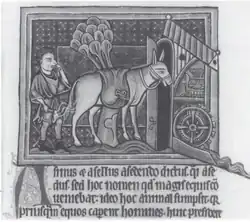 Asinus & asellus asedendo dictus q̄ ase
dus sed hoc nomen qd magis equisco
ueniebat: ideo hoc animal sumpsit q̄
priusquam equos caperent homines huic presider